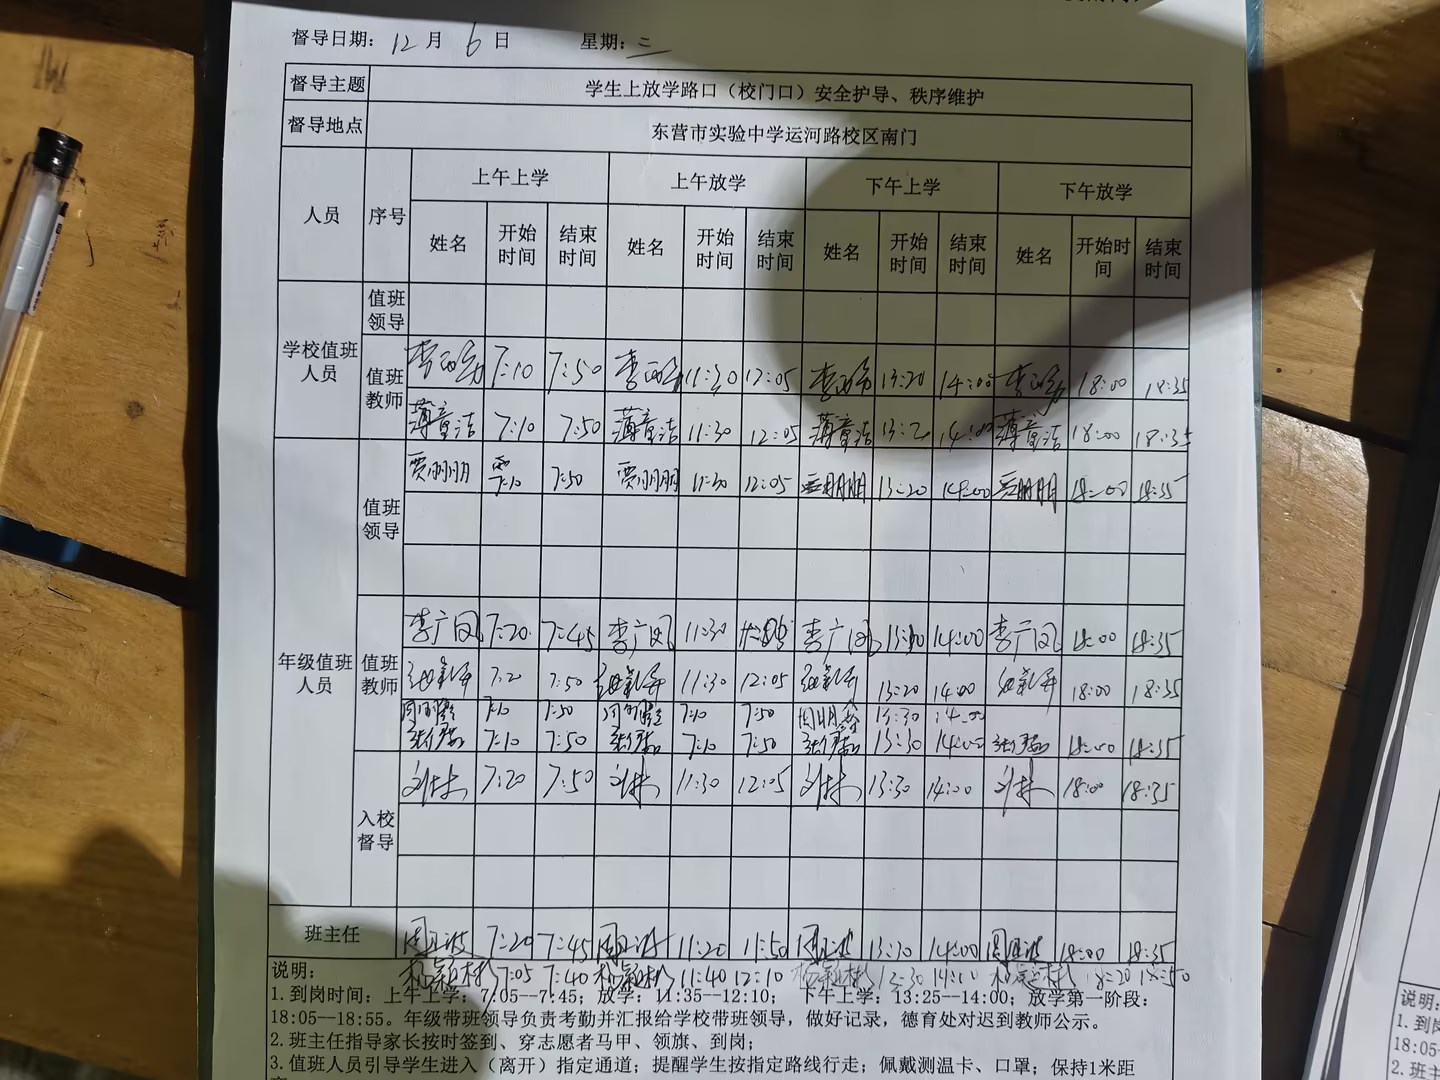 督导日期: 12 月 6 日 星期: 二
督导主题 学生上放学路口（校门口）安全护导、秩序维护
督导地点 东营市实验中学运河路校区南门
人员 序号 上午上学 上午放学 下午上学 下午放学
姓名 开始时间 结束时间 姓名 开始时间 结束时间 姓名 开始时间 结束时间 姓名 开始时间 结束时间
学校值班人员 值班领导
值班教师 7:10 7:50 11:30 12:05 13:20 14:00 18:00 18:35
薄童洁 7:10 7:50 薄童洁 11:30 12:05 薄童洁 13:20 14:00 薄童洁 18:00 18:35
年级值班人员 值班领导 贾朋朋 7:10 7:50 贾朋朋 11:30 12:05 贾朋朋 13:20 14:00 贾朋朋 18:00 18:35
值班教师 李广凤 7:20 7:45 李广凤 11:30 李广凤 14:00 李广凤 18:00 18:35
7:20 7:50 11:30 12:05 13:20 14:00 18:00 18:35
7:10 7:50 7:10 7:50 13:30 14:00
7:10 7:50 7:10 7:50 13:30 14:00 18:00 18:35
入校督导 刘林 7:20 7:50 刘林 11:30 12:05 刘林 13:30 14:00 刘林 18:00 18:35
班主任 7:20 7:45 11:20 11:50 13:30 14:00 18:00 18:35
杨颖彬 7:05 7:40 杨颖彬 11:40 12:10 杨颖彬 13:30 14:10 杨颖彬 18:20 18:50
说明:
1. 到岗时间: 上午上学; 7:05--7:45; 放学: 11:35--12:10; 下午上学: 13:25--14:00; 放学第一阶段:
18:05--18:55。年级带班领导负责考勤并汇报给学校带班领导，做好记录，德育处对迟到教师公示。
2. 班主任指导家长按时签到、穿志愿者马甲、领旗、到岗;
3. 值班人员引导学生进入（离开）指定通道; 提醒学生按指定路线行走; 佩戴测温卡、口罩; 保持1米距
说明:
1. 到岗
18:05-
2. 班主